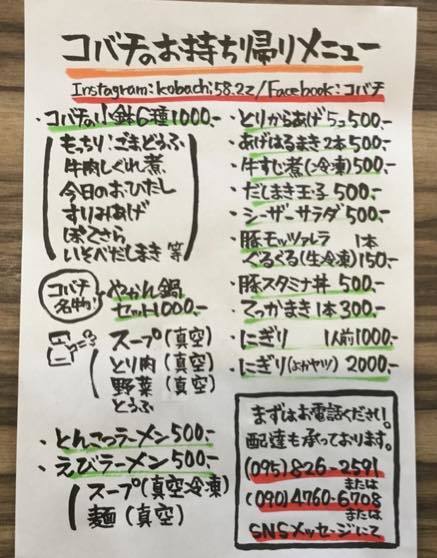 コバチのお持ち帰りメニュー
Instagram:kobachi.58.22/Facebook:コバチ
・コバチの小鉢6種1000,-
もっちりごまどうふ
牛肉しぐれ煮
今日のおひたし
すりみあげ
ぽてさら
いそべだしまき 等
コバチ名物!
やかん鍋
セット1000,-
スープ(真空)
とり肉(真空)
野菜(真空)
とうふ
・とんこつラーメン500,-
・えびラーメン500,-
スープ(真空冷凍)
麺(真空)
・とりからあげ5コ500,-
・あげはるまき2本500,-
・牛すじ煮(冷凍)500,-
・だしまき玉子500,-
・シーザーサラダ500,-
・豚モッツァレラ 1本
ぐるぐる(生冷凍)150,-
・豚スタミナ丼 500,-
・てっかまき1本300,-
・にぎり 1人前1000,-
・にぎり(よかヤツ) 2000,-
まずはお電話ください。
配達も承っております。
(095)826-2591
または
(090)4760-6708
または
SNSメッセージにて